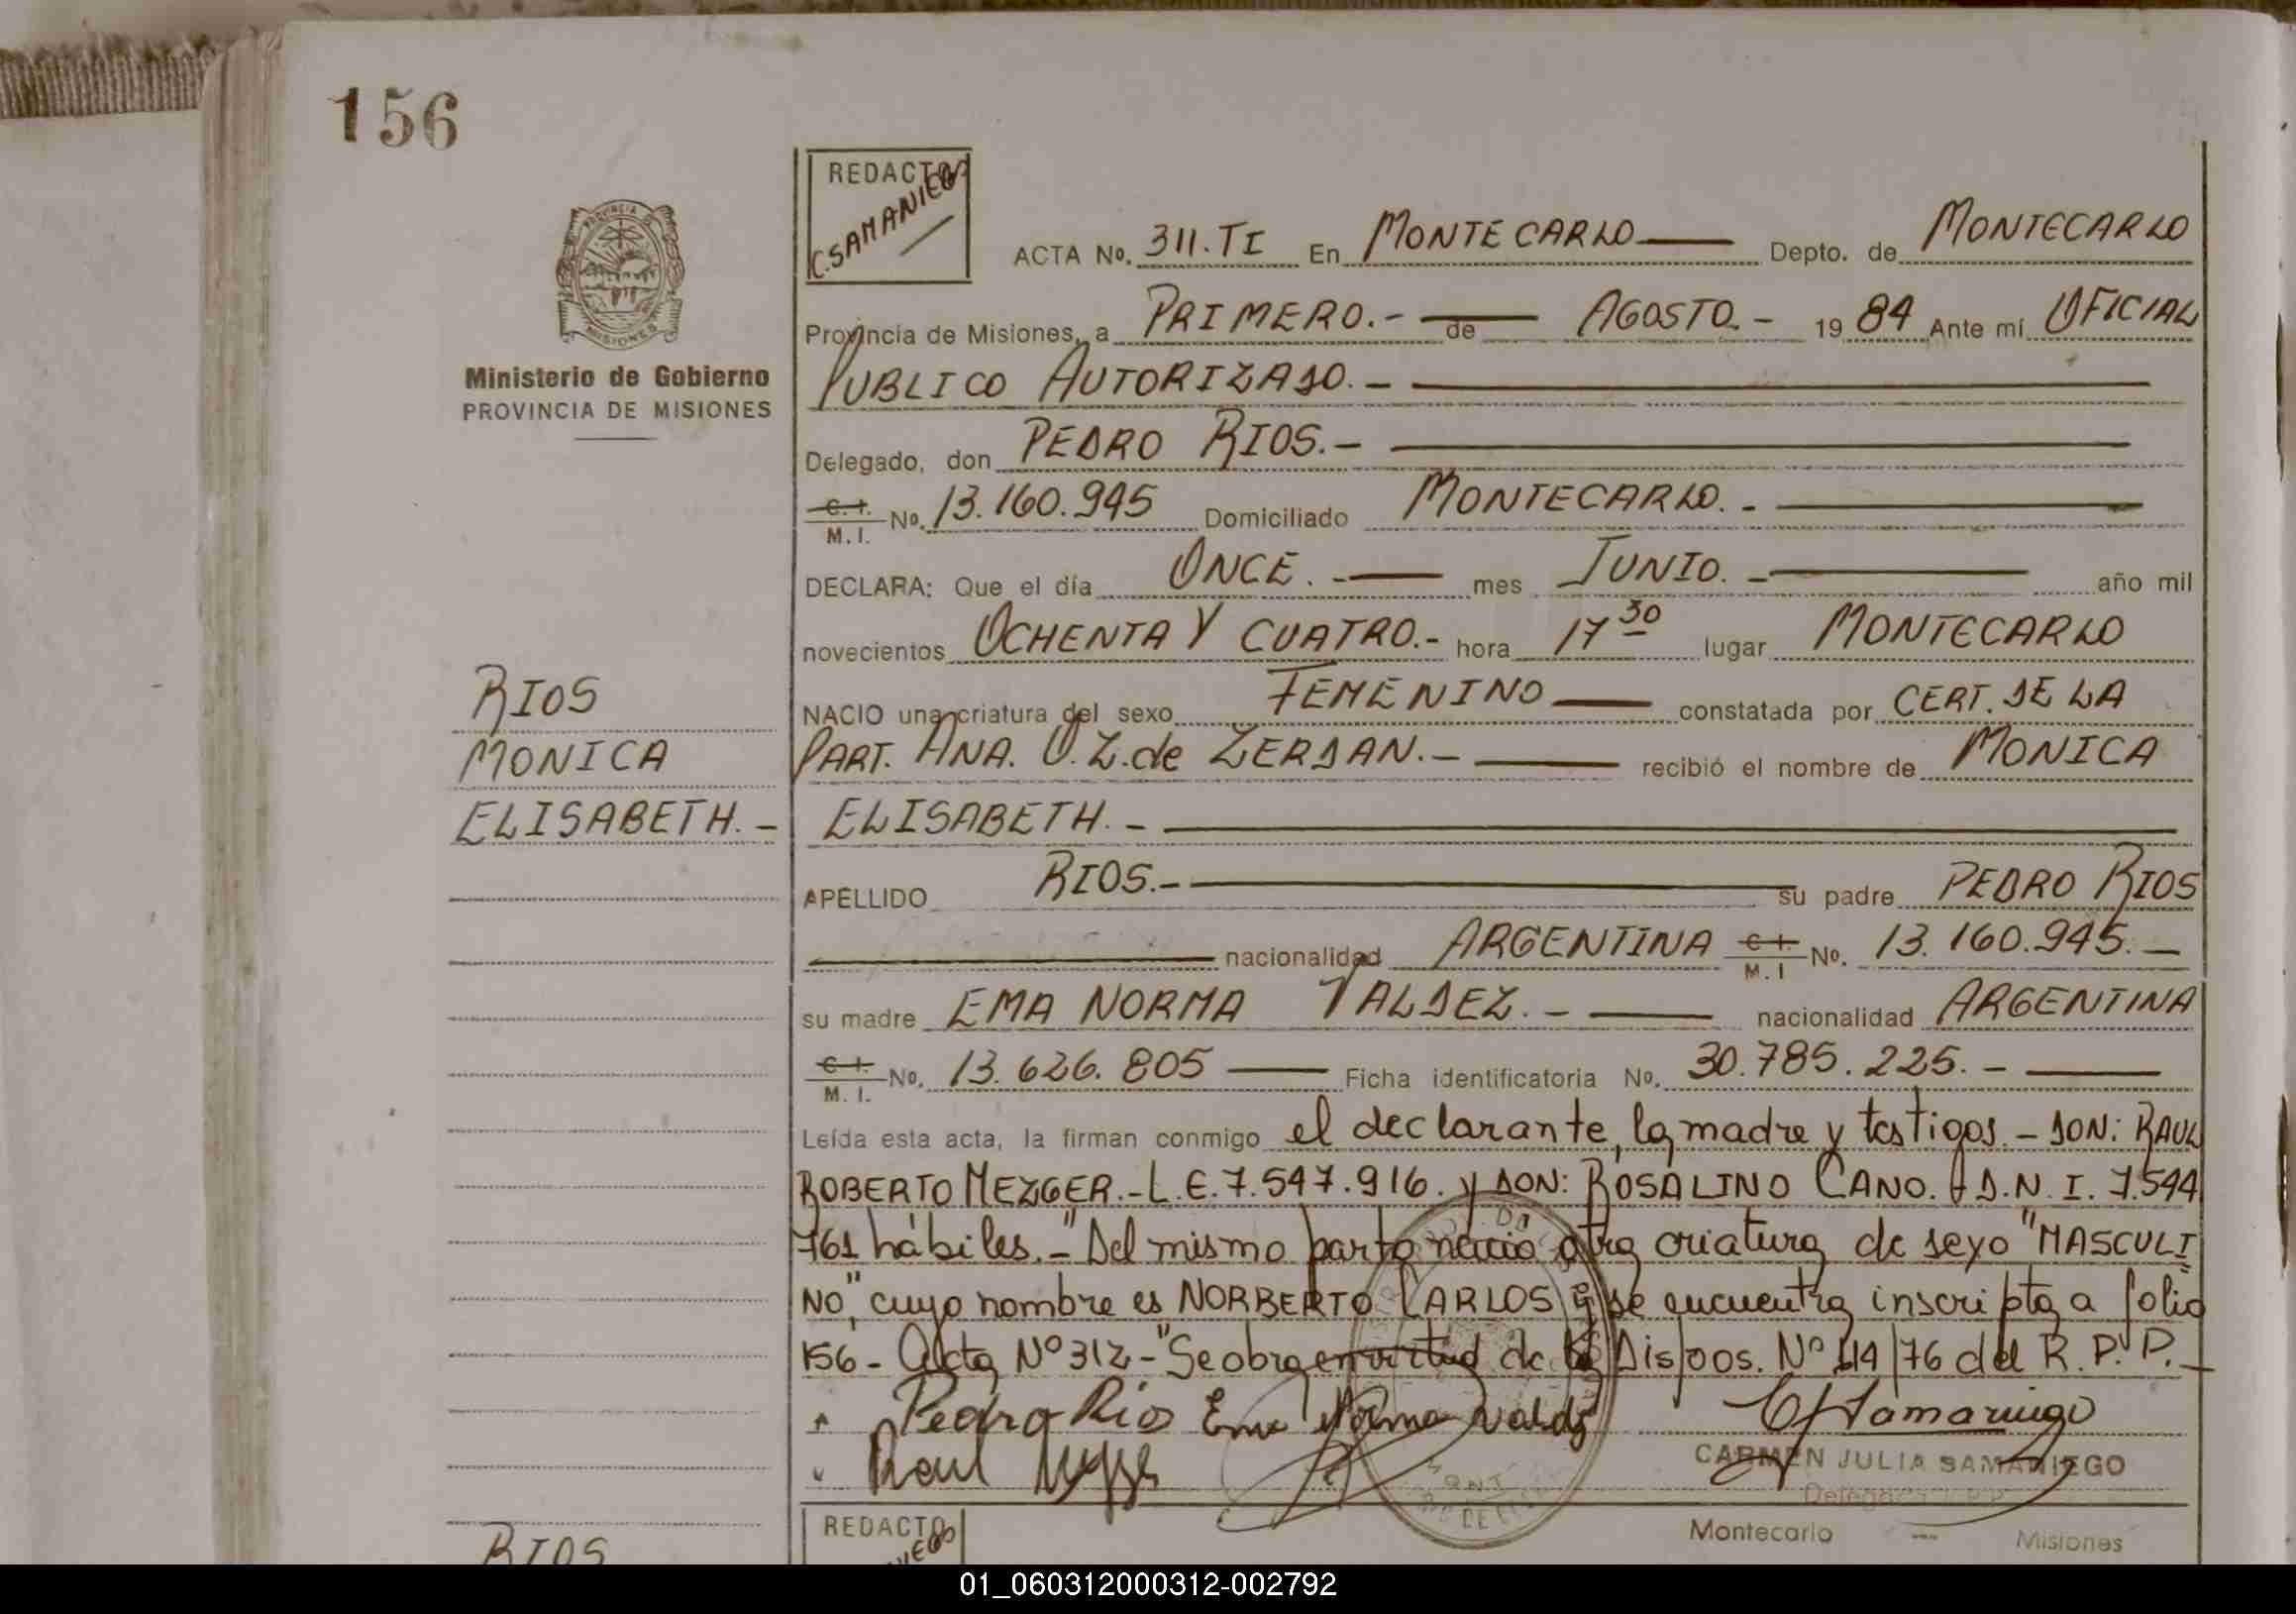 156
REDACTO
C. SAMANIEGO
ACTA No. 311. TI En MONTECARLO Depto. de MONTECARLO
Provincia de Misiones, a PRIMERO.- de AGOSTO.- 19 84 Ante mí OFICIAL
PUBLICO AUTORIZADO.-
Delegado, don PEDRO RIOS.-
C. I. M. I. No. 13.160.945 Domiciliado MONTECARLO.-
DECLARA: Que el día ONCE.- mes JUNIO.- año mil
novecientos OCHENTA Y CUATRO.- hora 17 30 lugar MONTECARLO
NACIO una criatura del sexo FEMENINO constatada por CERT. DE LA
PART. ANA. O. Z. de ZERDAN.- recibió el nombre de MONICA
ELISABETH.-
APELLIDO RIOS.- su padre PEDRO RIOS
nacionalidad ARGENTINA C I. M. I No. 13.160.945.-
su madre EMA NORMA VALDEZ.- nacionalidad ARGENTINA
C I. M. I. No. 13.626.805 Ficha identificatoria No. 30.785.225.-
Leída esta acta, la firman conmigo el declarante, la madre y testigos.- DON: RAUL
ROBERTO MEZGER.- L.E. 7.547.916. y DON: ROSALINO CANO. D.N.I. 7.544
761 hábiles.- "Del mismo parto nació otra criatura de sexo "MASCULI
NO", cuyo nombre es NORBERTO CARLOS y se encuentra inscripta a folio
156- Acta Nº 312-"Se obra en virtud de la Dispos. Nº 114/76 del R.P.P.-
Pedro Rios Ema Norma Valdez
Raul
CARMEN JULIA SAMANIEGO
Montecarlo — Misiones
PROVINCIA DE MISIONES
Ministerio de Gobierno
PROVINCIA DE MISIONES
RIOS
MONICA
ELISABETH.-
RIOS
REDACTO
01_060312000312-002792